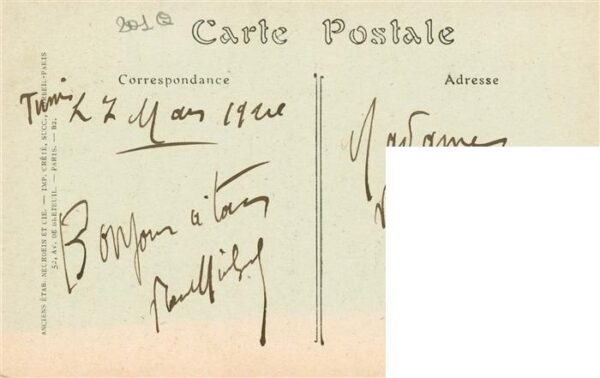 201
Carte Postale
Correspondance
Adresse
Tunis
27 Mars
Madame
Bonjour à tous
ANCIENS ÉTAB. NEURDEIN ET CIE. — IMP. CRÉTÉ, SUCC., CORBEIL-PARIS
52, AV. DE BRETEUIL. — PARIS. — B2.